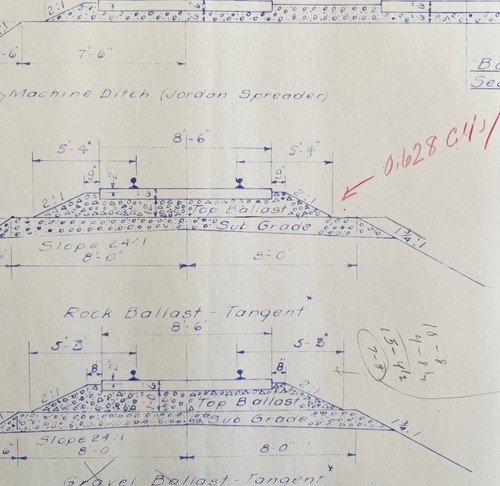 2:1
7'-6"
Machine Ditch (Jordan Spreader)
8'-6"
5'-4" 5'-4"
0.628 CY's/
2:1 2" 2:1
Top Ballast
Sub Grade
Slope 24:1 1¾:1
8'-0" 8'-0"
Rock Ballast-Tangent
8'-6"
5'-3" 5'-3"
8" 2" 8"
2:1 2:1
Top Ballast
Sub Grade
Slope 24:1 1¾:1
8'-0" 8'-0"
Gravel Ballast-Tangent